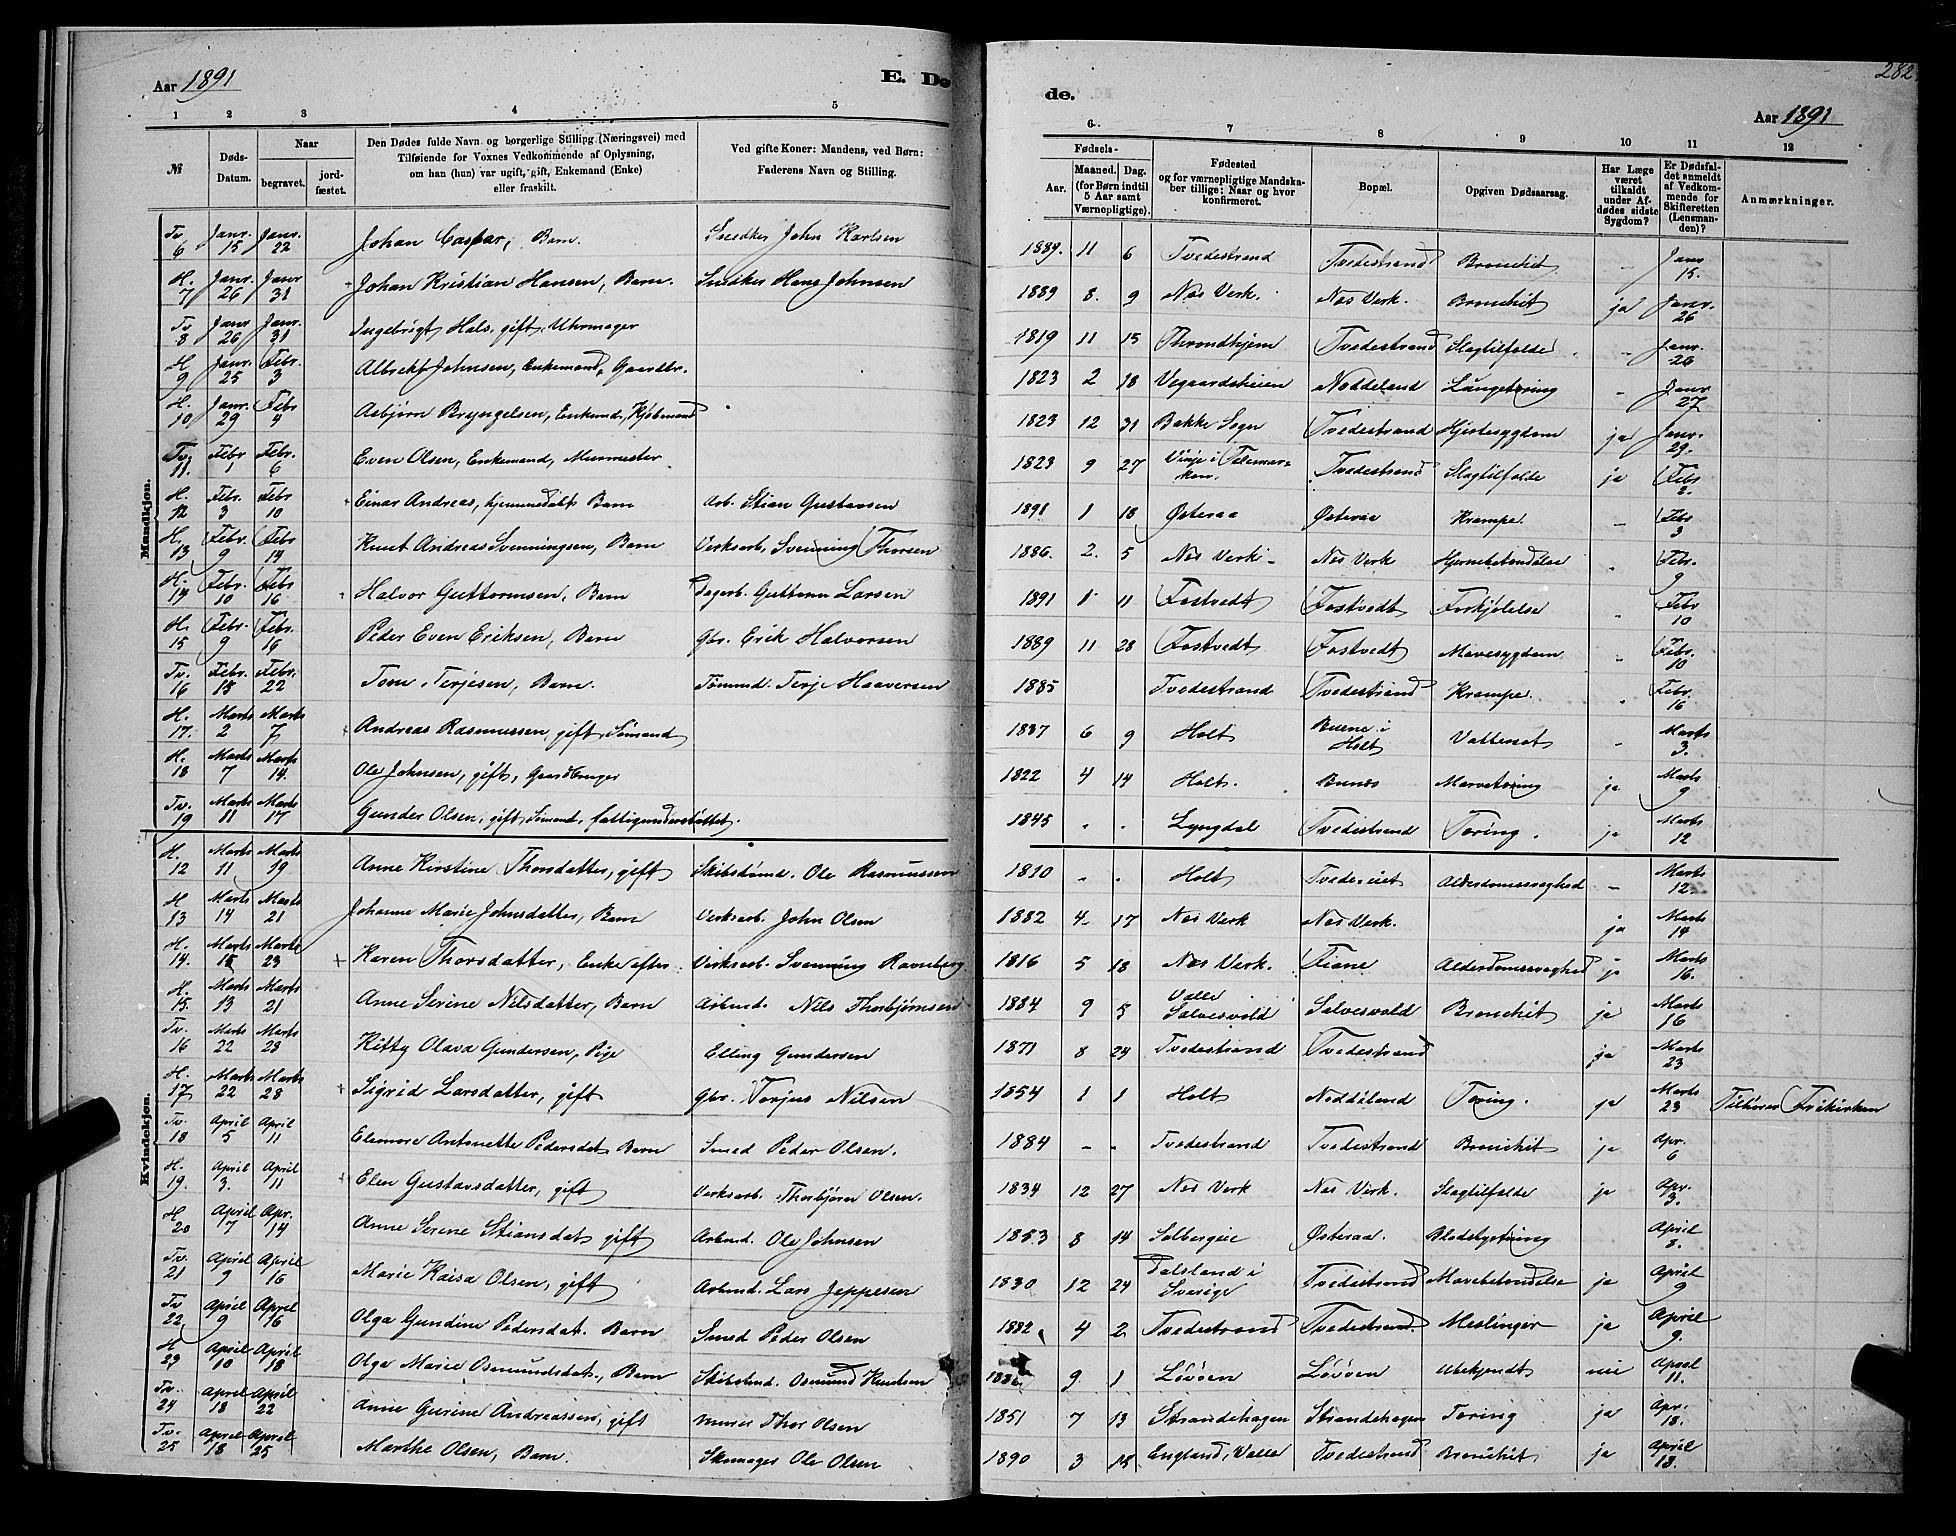 Aar 1891
E. Dø
1 2 3 4 5
№ Døds-Datum. Naar begravet. jordfæstet. Den Dødes fulde Navn og borgerlige Stilling (Næringsvei) med Tilføiende for Voxnes Vedkommende af Oplysning, om han (hun) var ugift, gift, Enkemand (Enke) eller fraskilt. Ved gifte Koner: Mandens, ved Børn: Faderens Navn og Stilling.
Mandkjøn.
Tv. 6 Janr. 15 Janr. 22 Johan Caspar, Barn. Snedker John Karlsen
H. 7 Janr. 26 Janr 31 Johan Kristian Hansen, Barn. Snedker Hans Johnsen
Tv 8 Janr 26 Janr. 31 Ingebrigt Hals, gift, Uhrmager
H 9 Janr. 25 Febr. 3 Albrekt Johnsen, Enkemand, Gaardbr.
H. 10 Janr. 29 Febr 4 Asbjørn Bryngelsen, Enkemd, Kjøbmand
Tv. 11. Febr 1 Febr. 6 Even Olsen, Enkemand, Murmester
H. 12 Febr. 3 Febr 10 Einar Andreas, hjemmedøbt Barn Arb. Stian Gustavsen
H. 13 Febr. 9 Febr 14 Knut Andreas Svenningsen, Barn Verksarb. Svenning Thorsen
H. 14 Febr. 10 Febr 16 Halvor Guttormsen, Barn Dagarb. Guttorm Larsen
H. 15 Febr. 9 Febr. 16 Peder Even Eriksen, Barn Gbr. Erik Halvorsen
Tv. 16 Febr. 15 Febr. 22 Tom Terjesen, Barn. Tømmd. Terje Haaversen
H. 17. Marts 2 Marts 7 Andreas Rasmussen, gift Sømand
H. 18 Marts 7 Marts 14. Ole Johnsen, gift, Gaardbruger
Tv. 19 Marts 11 Marts 17 Gunder Olsen, gift Sømand, fattigunderstøttet.
Kvindekjøn.
H. 12 Marts 11 Marts 19 Anne Kirstine Thorsdatter, gift Skibstømd. Ole Rasmussen
H 13 Marts 14 Marts 21 Johanne Marie Johnsdatter, Barn Verksarb. John Olsen
H. 14. Marts 15 Marts 23 + Karen Thorsdatter, Enke efter Verksarb. Svenning Ravneberg
H. 15. Marts 13 Marts 21 Anne Serine Nilsdatter, Barn Arbmd. Nils Thorbjørnsen
Tv. 16 Marts 22 Marts 28 Kitty Olava Gundersen, Pige Elling Gundersen
H. 17 Marts 22 Marts 28 + Sigrid Larsdatter, gift Gbr. Torjus Nilsen
Tv. 18 April 5 April 11 Eleonore Antonette Pedersdat. Barn Smed Peder Olsen.
H. 19. April 3. April 11 Elen Gustavsdatter, gift Verksarb. Thorbjørn Olsen.
H 20 April 7 Apr. 14 Anne Serine Stiansdat gift Arbmd. Ole Johnsen
Tv. 21 April 9 April 16 Marie Kaisa Olsen, gift Arbmd. Lars Jeppesen
Tv 22 April 9 April 16 Olga Gundine Pedersdat. Barn Smed Peder Olsen
H 23 April 10 April 18 Olga Marie Osmundsdat., Barn Skibstmd. Osmund Knutsen
Tv. 24 April 18 April 22 Anne Gurine Andreassen, gift Murer Thor Olsen
Tv. 25 April 18 April 25 Marthe Olsen, Barn. Skomager Ole Olsen
282
de.
Aar 1891
6. 7 8 9 10 11 12
Fødsels- Aar. Maaned. Dag. (for Børn indtil 5 Aar samt Værnepligtige). Fødested og for værnepligtige Mandskaber tillige: Naar og hvor konfirmeret. Bopæl. Opgiven Dødsaarsag. Har Læge været tilkaldt under Afdødes sidste Sygdom? Er Dødsfaldet anmeldt af Vedkommende for Skifteretten (Lensmanden)? Anmærkninger.
1889. 11 6 Tvedestrand Tvedestrand Bronchit - Janr 15.
1889 8. 9 Næs Verk. Næs Verk. Bronchit ja Janr. 26
1819 11 15 Throndhjem Tvedestrand Slagtilfælde - Janr. 26
1823 2 18 Vegaardsheien Noddeland Lungetæring - Janr 27
1823 12 31 Bakke Sogn Tvedestrand Hjertesygdom ja Janr. 29.
1823 9 27 Vinje i Telemarken. Tvedestrand Slagtilfælde ja Febr 2.
1891 1 18 Østeraa Østeraa Krampe. - Febr 3
1886. 2. 5 Næs Verk - Næs Verk Hjernebetændelse Febr. 9
1891 1 11 Fostvedt Fostvedt Forkjølelse Febr 10
1889 11 28 Fostvedt Fostvedt Mavesygdom Febr. 10
1885 Tvedestrand Tvedestrand Krampe. Febr 16
1837 6 9 Holt Buene i Holt Vattersot - Marts 3.
1822 4 14 Holt. Bunæs Marvetæring ja Marts 9
1845 - - Lyngdal Tvedestrand Tæring. ja Marts 12
1810 - - Holt Tvedeseiet Alderdomssvaghed - Marts 12.
1882 4 17 Næs Verk Næs Verk. ja Marts 14
1816 5 18 Næs Verk. Fiane Alderdomssvaghed ja Marts 16.
1884 9 5 Valle Solvesvold Solvesvold Bronchit ja Marts 16
1871 8 24 Tvedestrand Tvedestrand ja Marts 23
1854 1 1 Holt Noddeland Tæring. ja Marts 23 Tilhører Frikirken
1884 - - Tvedestrand Tvedestrand Bronchit ja Apr. 6
1834 12 27 Næs Verk Næs Verk. Slagtilfælde ja Apr. 3.
1853 8 14 Solbergeie Østeraa. Blodstyrtning April 8.
1830 12 24 Dalsland i Sverige Tvedestrand Mavebetændelse ja April 9
1882 4 2 Tvedestrand Tvedestrand. Meslinger ja April 9.
9. 1 Løvøen Løvøen Ubekjendt nei April 11.
1851 7 13 Strandehagen Strandehagen Tæring ja Apr. 18.
1890 3 15 England, Valle Tvedestrand Bronchit ja April 18.